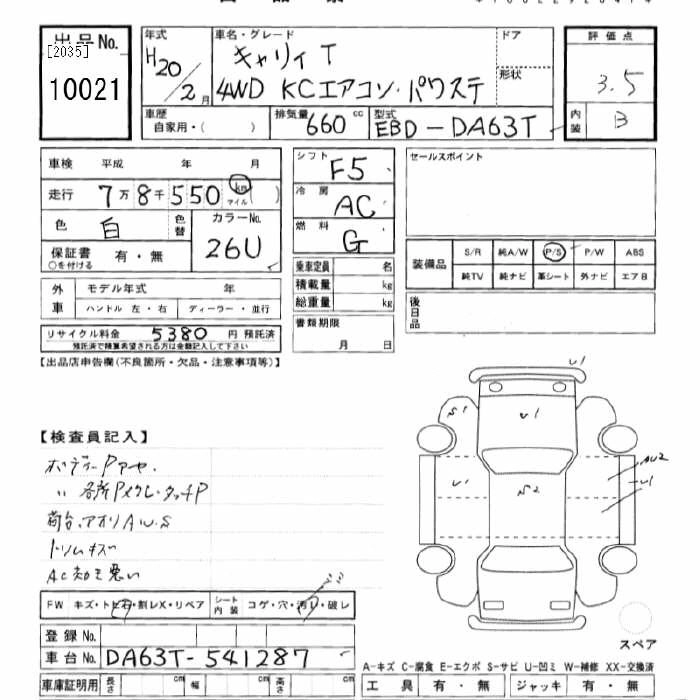 出品No.
[2035]
10021
年式
H20/2月
車名・グレード
キャリィT
4WD KCエアコン・パワステ
ドア
形状
評価点
3.5
内装
B
車歴
自家用・( )
排気量 660 cc
型式
EBD-DA63T
車検 平成 年 月
走行 7万8千550 km ( )
マイル
色 白
色替
カラーNo.
26U
保証書 有・無
○を付ける
外車
モデル年式 年
ハンドル 左・右 ディーラー・並行
リサイクル料金 5380 円 預託済
預託済で精算希望される方は金額記入して下さい
シフト F5
冷房 AC
燃料 G
乗車定員 名
積載量 kg
総重量 kg
書類期限
月 日
セールスポイント
装備品
S/R 純A/W P/S P/W ABS
純TV 純ナビ 革シート 外ナビ エアB
後日品
【出品店申告欄(不良箇所・欠品・注意事項等)】
【検査員記入】
ボディーPアセ.
〃 各所Pメクレ・タッチP
荷台、アオリA.U.S
トリムキズ
FW キズ・トビ石・割レX・リペア
シート内装 コゲ・穴・汚レ・破レ
登録No.
車台No. DA63T-541287
車庫証明用 長さ cm 幅 cm 高さ cm
U1
S1
U1
AU2
U1
U1
S2
スペア
A-キズ C-腐食 E-エクボ S-サビ U-凹ミ W-補修 XX-交換済
工具 有・無 ジャッキ 有・無